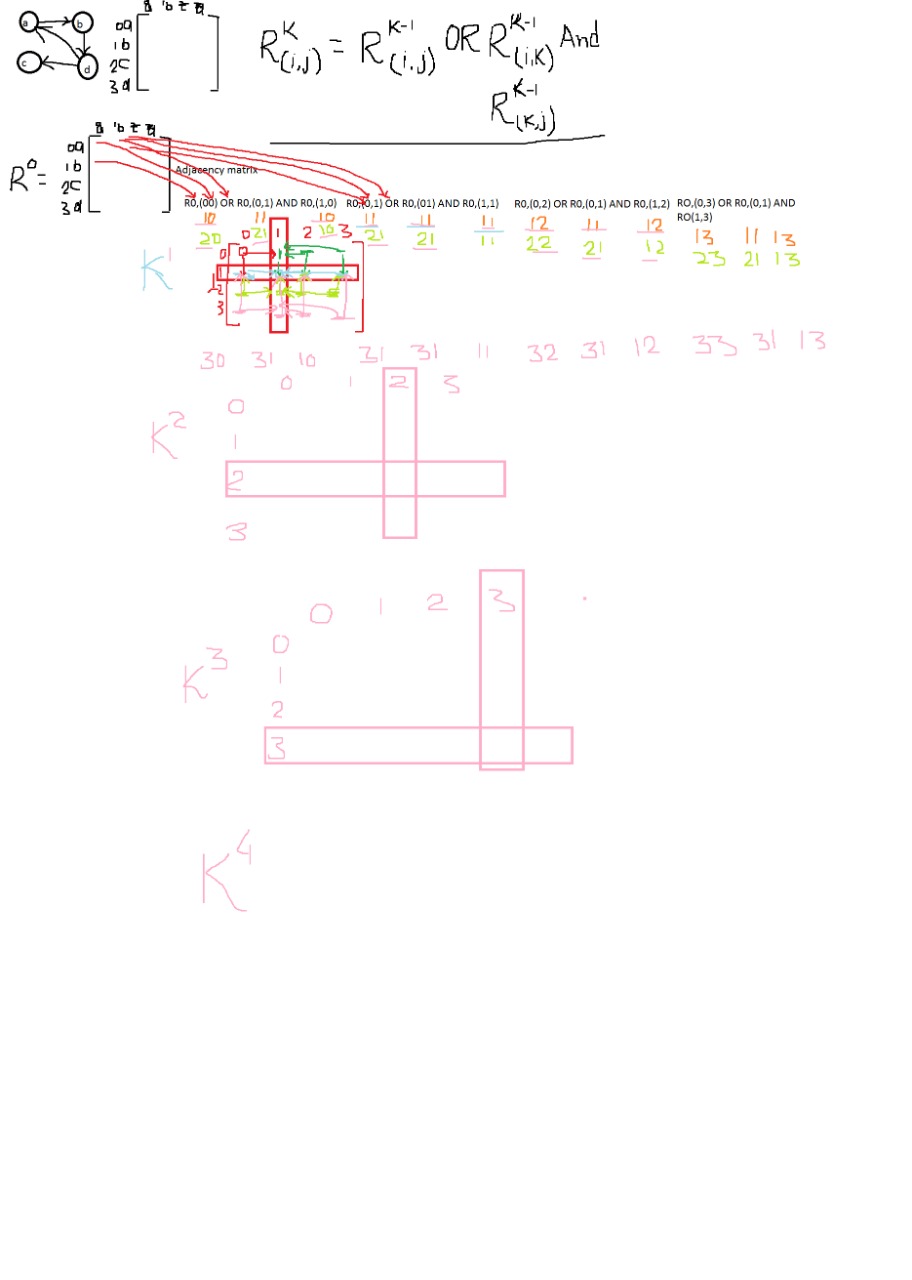 a b
c d
0a
1b
2c
3d
R^K_(i,j) = R^K-1_(i,j) OR R^K-1_(i,K) And
R^K-1_(K,j)
R^0 =
0a
1b
2c
3d
Adjacency matrix
R0,(00) OR R0,(0,1) AND R0,(1,0) R0,(0,1) OR R0,(01) AND R0,(1,1) R0,(0,2) OR R0,(0,1) AND R0,(1,2) R0,(0,3) OR R0,(0,1) AND
RO(1,3)
10 11 10 11 11 11 12 11 12 13 11 13
20 21 10 21 21 11 22 21 12 23 21 13
0 1 2 3
K^1
0
1
2
3
30 31 10 31 31 11 32 31 12 33 31 13
0 1 2 3
0
K^2
1
2
3
0 1 2 3
0
K^3
1
2
3
K^4